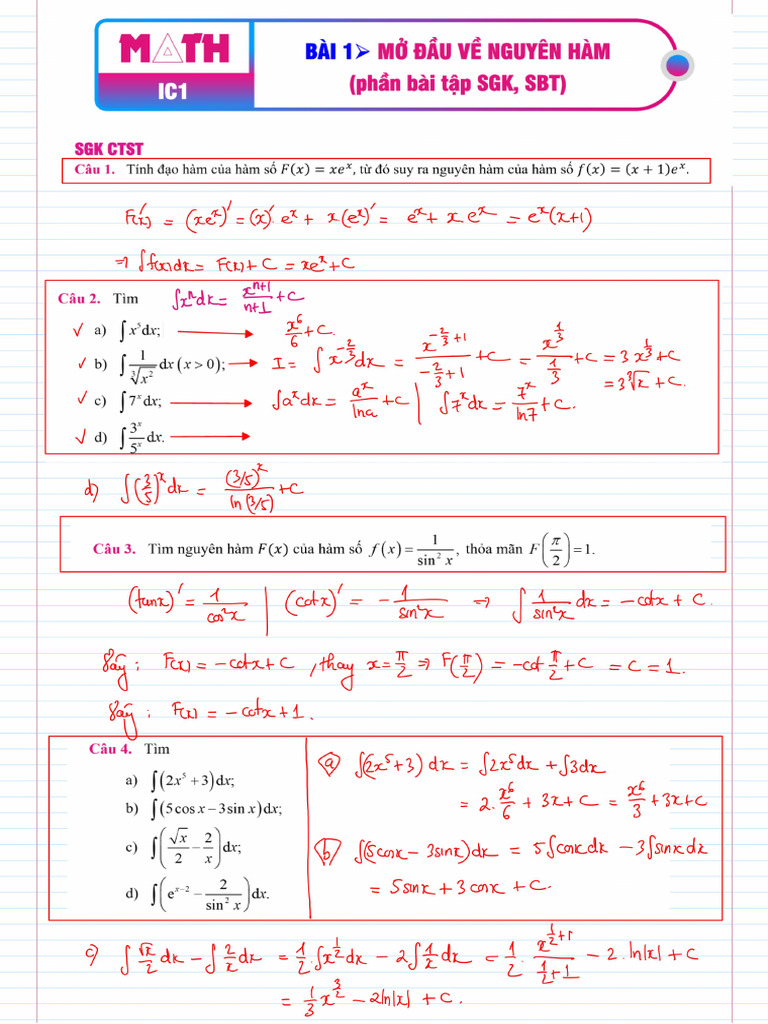 MATH
IC1
BÀI 1➢ MỞ ĐẦU VỀ NGUYÊN HÀM
(phần bài tập SGK, SBT)
SGK CTST
Câu 1. Tính đạo hàm của hàm số F(x) = xeˣ, từ đó suy ra nguyên hàm của hàm số f(x) = (x + 1)eˣ.
F'(x) = (xeˣ)' = (x)'. eˣ + x(eˣ)' = eˣ + x eˣ = eˣ(x+1)
⇒ ∫f(x)dx = F(x) + C = xeˣ + C
Câu 2. Tìm ∫xⁿdx = xⁿ⁺¹/(n+1) + C
✓ a) ∫x⁵dx; → x⁶/6 + C.
✓ b) ∫1/∛(x²) dx (x > 0); → I = ∫x^(-2/3)dx = x^(-2/3+1)/(-2/3+1) + C = x^(1/3)/(1/3) + C = 3x^(1/3) + C
= 3∛x + C.
✓ c) ∫7ˣdx; → ∫aˣdx = aˣ/lna + C | ∫7ˣdx = 7ˣ/ln7 + C.
✓ d) ∫3ˣ/5ˣ dx. →
d) ∫(3/5)ˣdx = (3/5)ˣ/ln(3/5) + C
Câu 3. Tìm nguyên hàm F(x) của hàm số f(x) = 1/sin²x, thỏa mãn F(π/2) = 1.
(tanx)' = 1/cos²x | (cotx)' = -1/sin²x ⇒ ∫1/sin²x dx = -cotx + C.
Vậy: F(x) = -cotx + C, thay x = π/2 ⇒ F(π/2) = -cot π/2 + C = C = 1.
Vậy: F(x) = -cotx + 1.
Câu 4. Tìm
a) ∫(2x⁵ + 3)dx;
b) ∫(5cos x − 3sin x)dx;
c) ∫(√x/2 − 2/x)dx;
d) ∫(eˣ⁻² − 2/sin²x)dx.
a) ∫(2x⁵+3)dx = ∫2x⁵dx + ∫3dx
= 2.x⁶/6 + 3x + C = x⁶/3 + 3x + C
b) ∫(5cosx − 3sinx)dx = 5∫cosxdx − 3∫sinxdx
= 5sinx + 3cosx + C.
c) ∫√x/2 dx − ∫2/x dx = 1/2.∫x^(1/2)dx − 2∫1/x dx = 1/2 . x^(1/2+1)/(1/2+1) − 2.ln|x| + C
= 1/3 x^(3/2) − 2ln|x| + C.